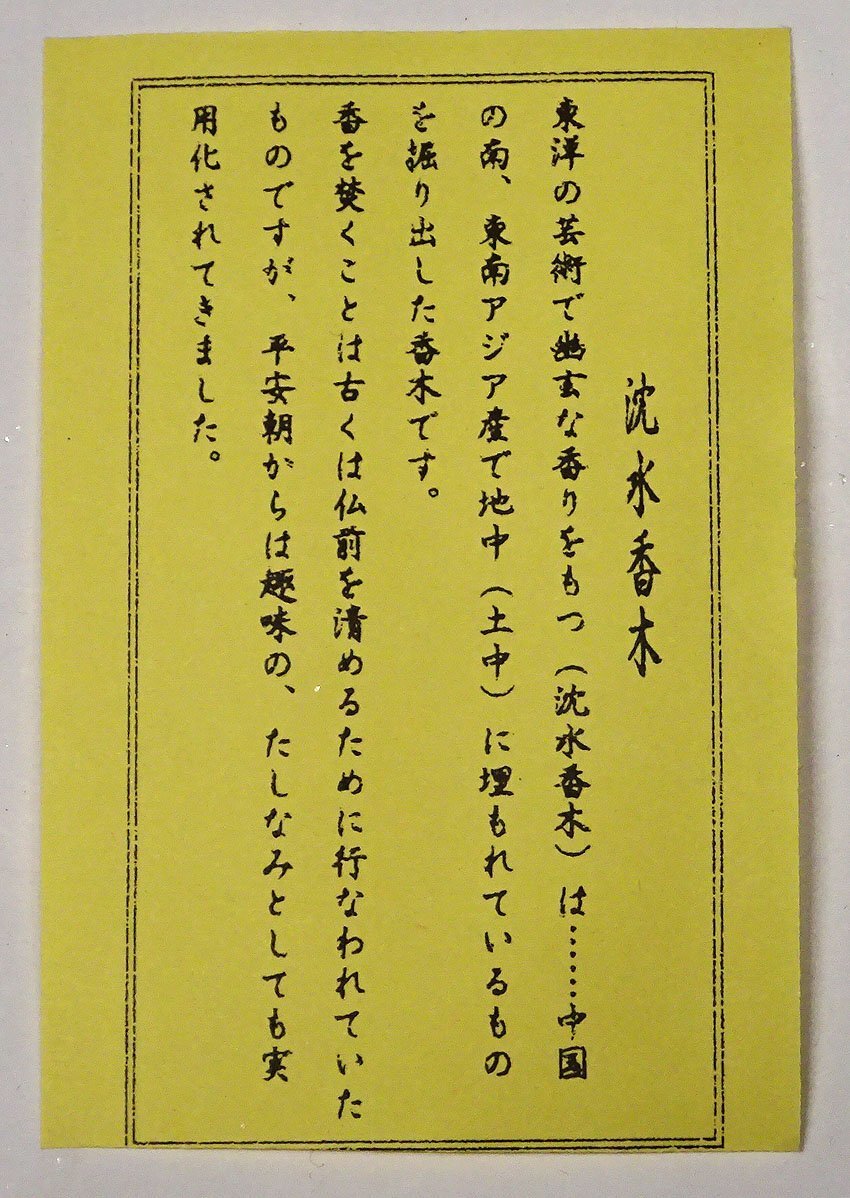 沈水香木
東洋の芸術で幽玄な香りをもつ（沈水香木）は……中国
の南、東南アジア産で地中（土中）に埋もれているもの
を掘り出した香木です。
香を焚くことは古くは仏前を清めるために行なわれていた
ものですが、平安朝からは趣味の、たしなみとしても実
用化されてきました。